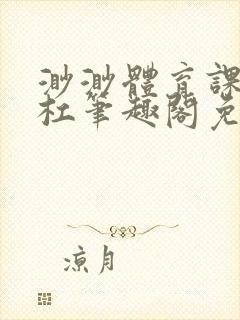 渺渺體育課
杜筆趣閣免
涼月